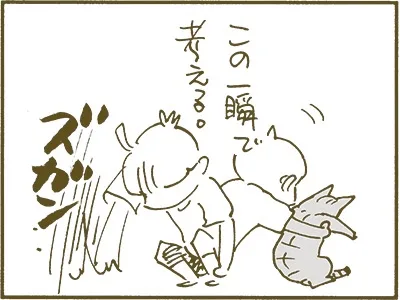 この一瞬で
考える。
ズガン…